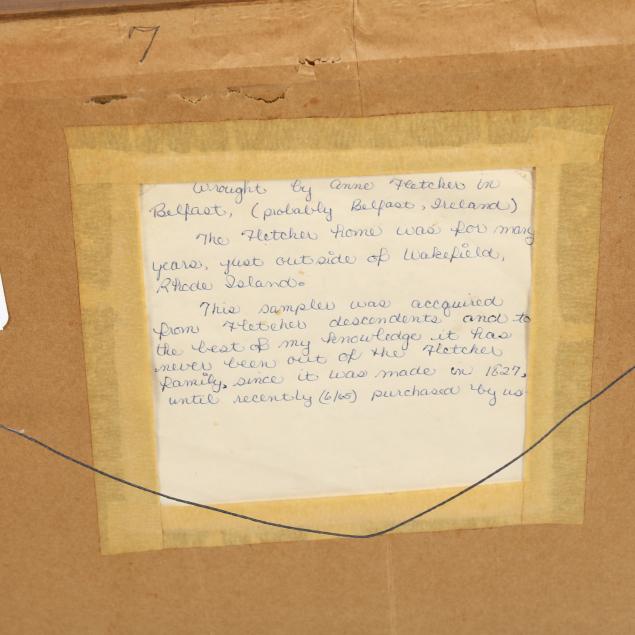 7
Wrought by Anne Fletcher in
Belfast, (probably Belfast, Ireland)
The Fletcher home was for many
years, just outside of Wakefield,
Rhode Island.
This sampler was accquired
from Fletcher descendents and to
the best of my knowledge it has
never been out of the Fletcher
family, since it was made in 1827,
until recently (6/65) purchased by us